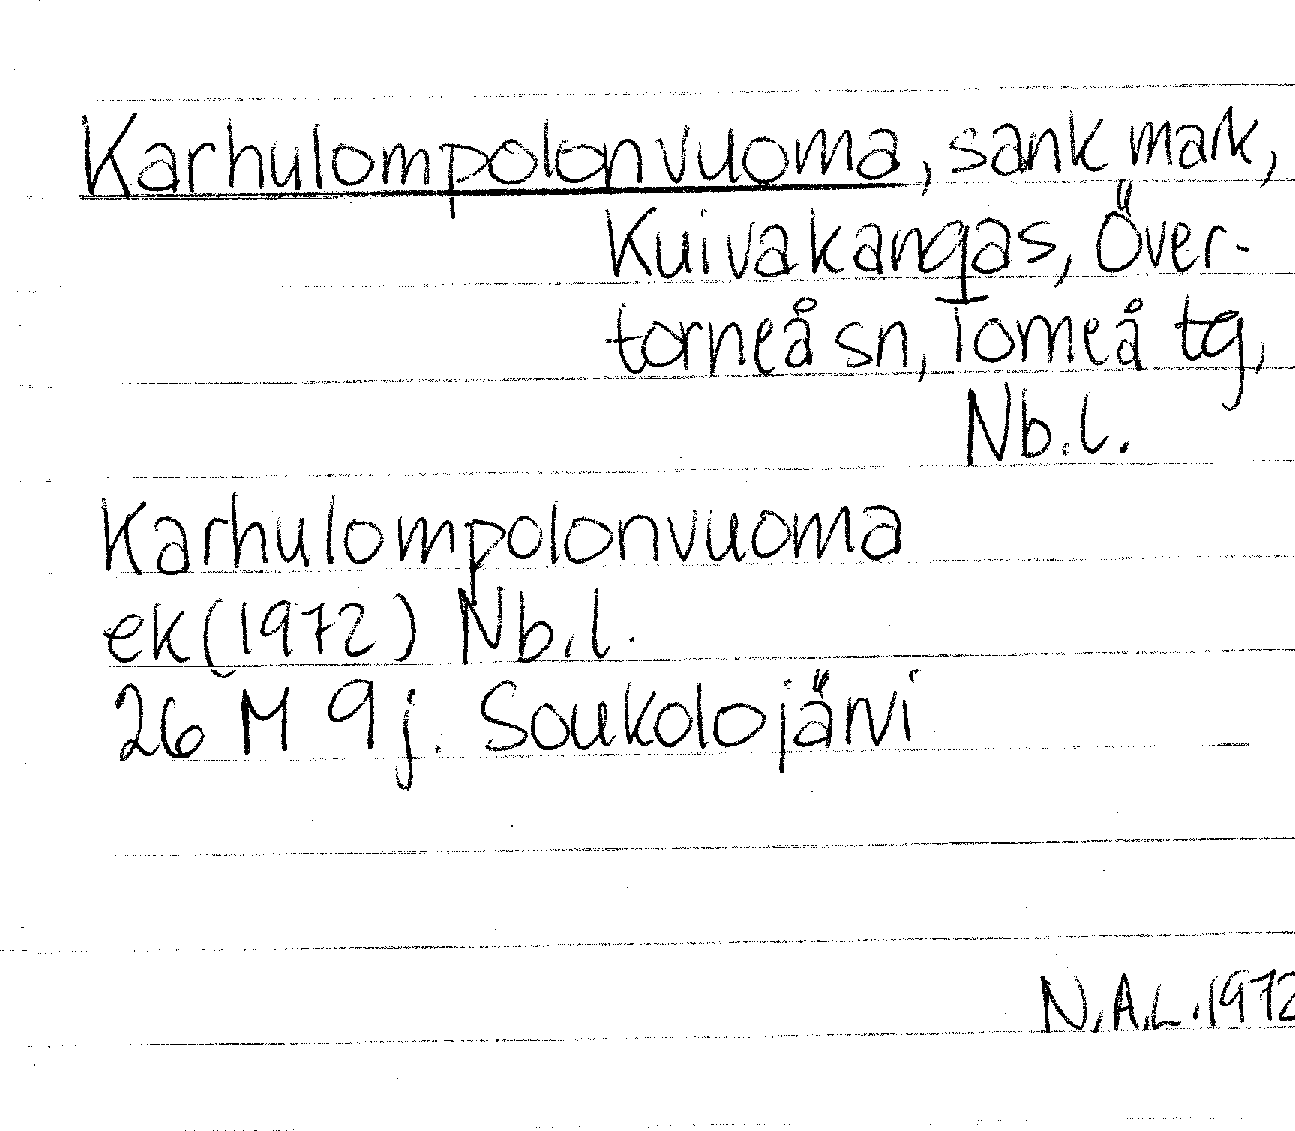 Karhulompolonvuoma, sank mark,
Kuivakangas, Över-
torneå sn, Torneå tg,
Nb.l.
Karhulompolonvuoma
ek (1972) Nb.l.
26 M 9j. Soukolojärvi
N.A.L. 1972